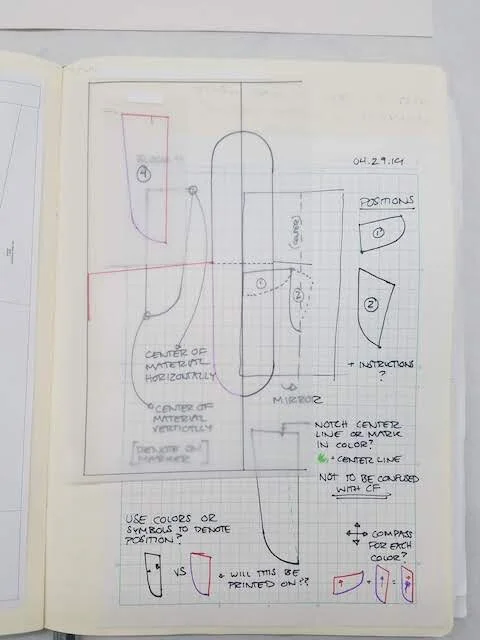 04.29.19
POSITIONS
4
1
(CENTER)
1
2
2
+ INSTRUCTIONS
?
CENTER OF
MATERIAL
HORIZONTALLY
MIRROR
CENTER OF
MATERIAL
VERTICALLY
[DENOTE ON
MARKER]
NOTCH CENTER
LINE OR MARK
IN COLOR?
= CENTER LINE
NOT TO BE CONFUSED
WITH CF
USE COLORS OR
SYMBOLS TO DENOTE
POSITION?
VS
WILL THIS BE
PRINTED ON??
COMPASS
FOR EACH
COLOR?
+ =